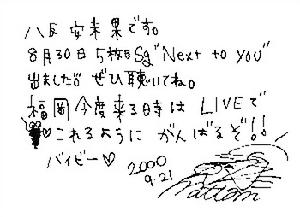 八反安未果です。
8月30日5枚目Sg"Next to you"
出ました!! ぜひ聴いてね。
福岡今度来る時は LIVEで
これるように がんばるぞ!!
バイビー♡ 2000
9.21